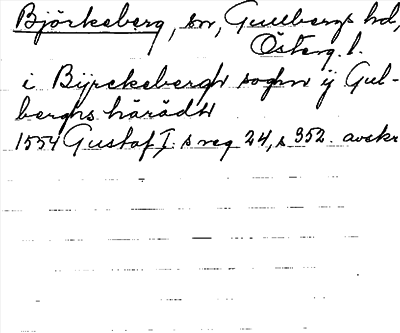 Björkeberg, sn, Gullbergs hd,
Österg. l.
i Byrckebergh soghn ÿ Gul-
berghs häradh
1554 Gustaf I:s reg 24, s 352. avskr